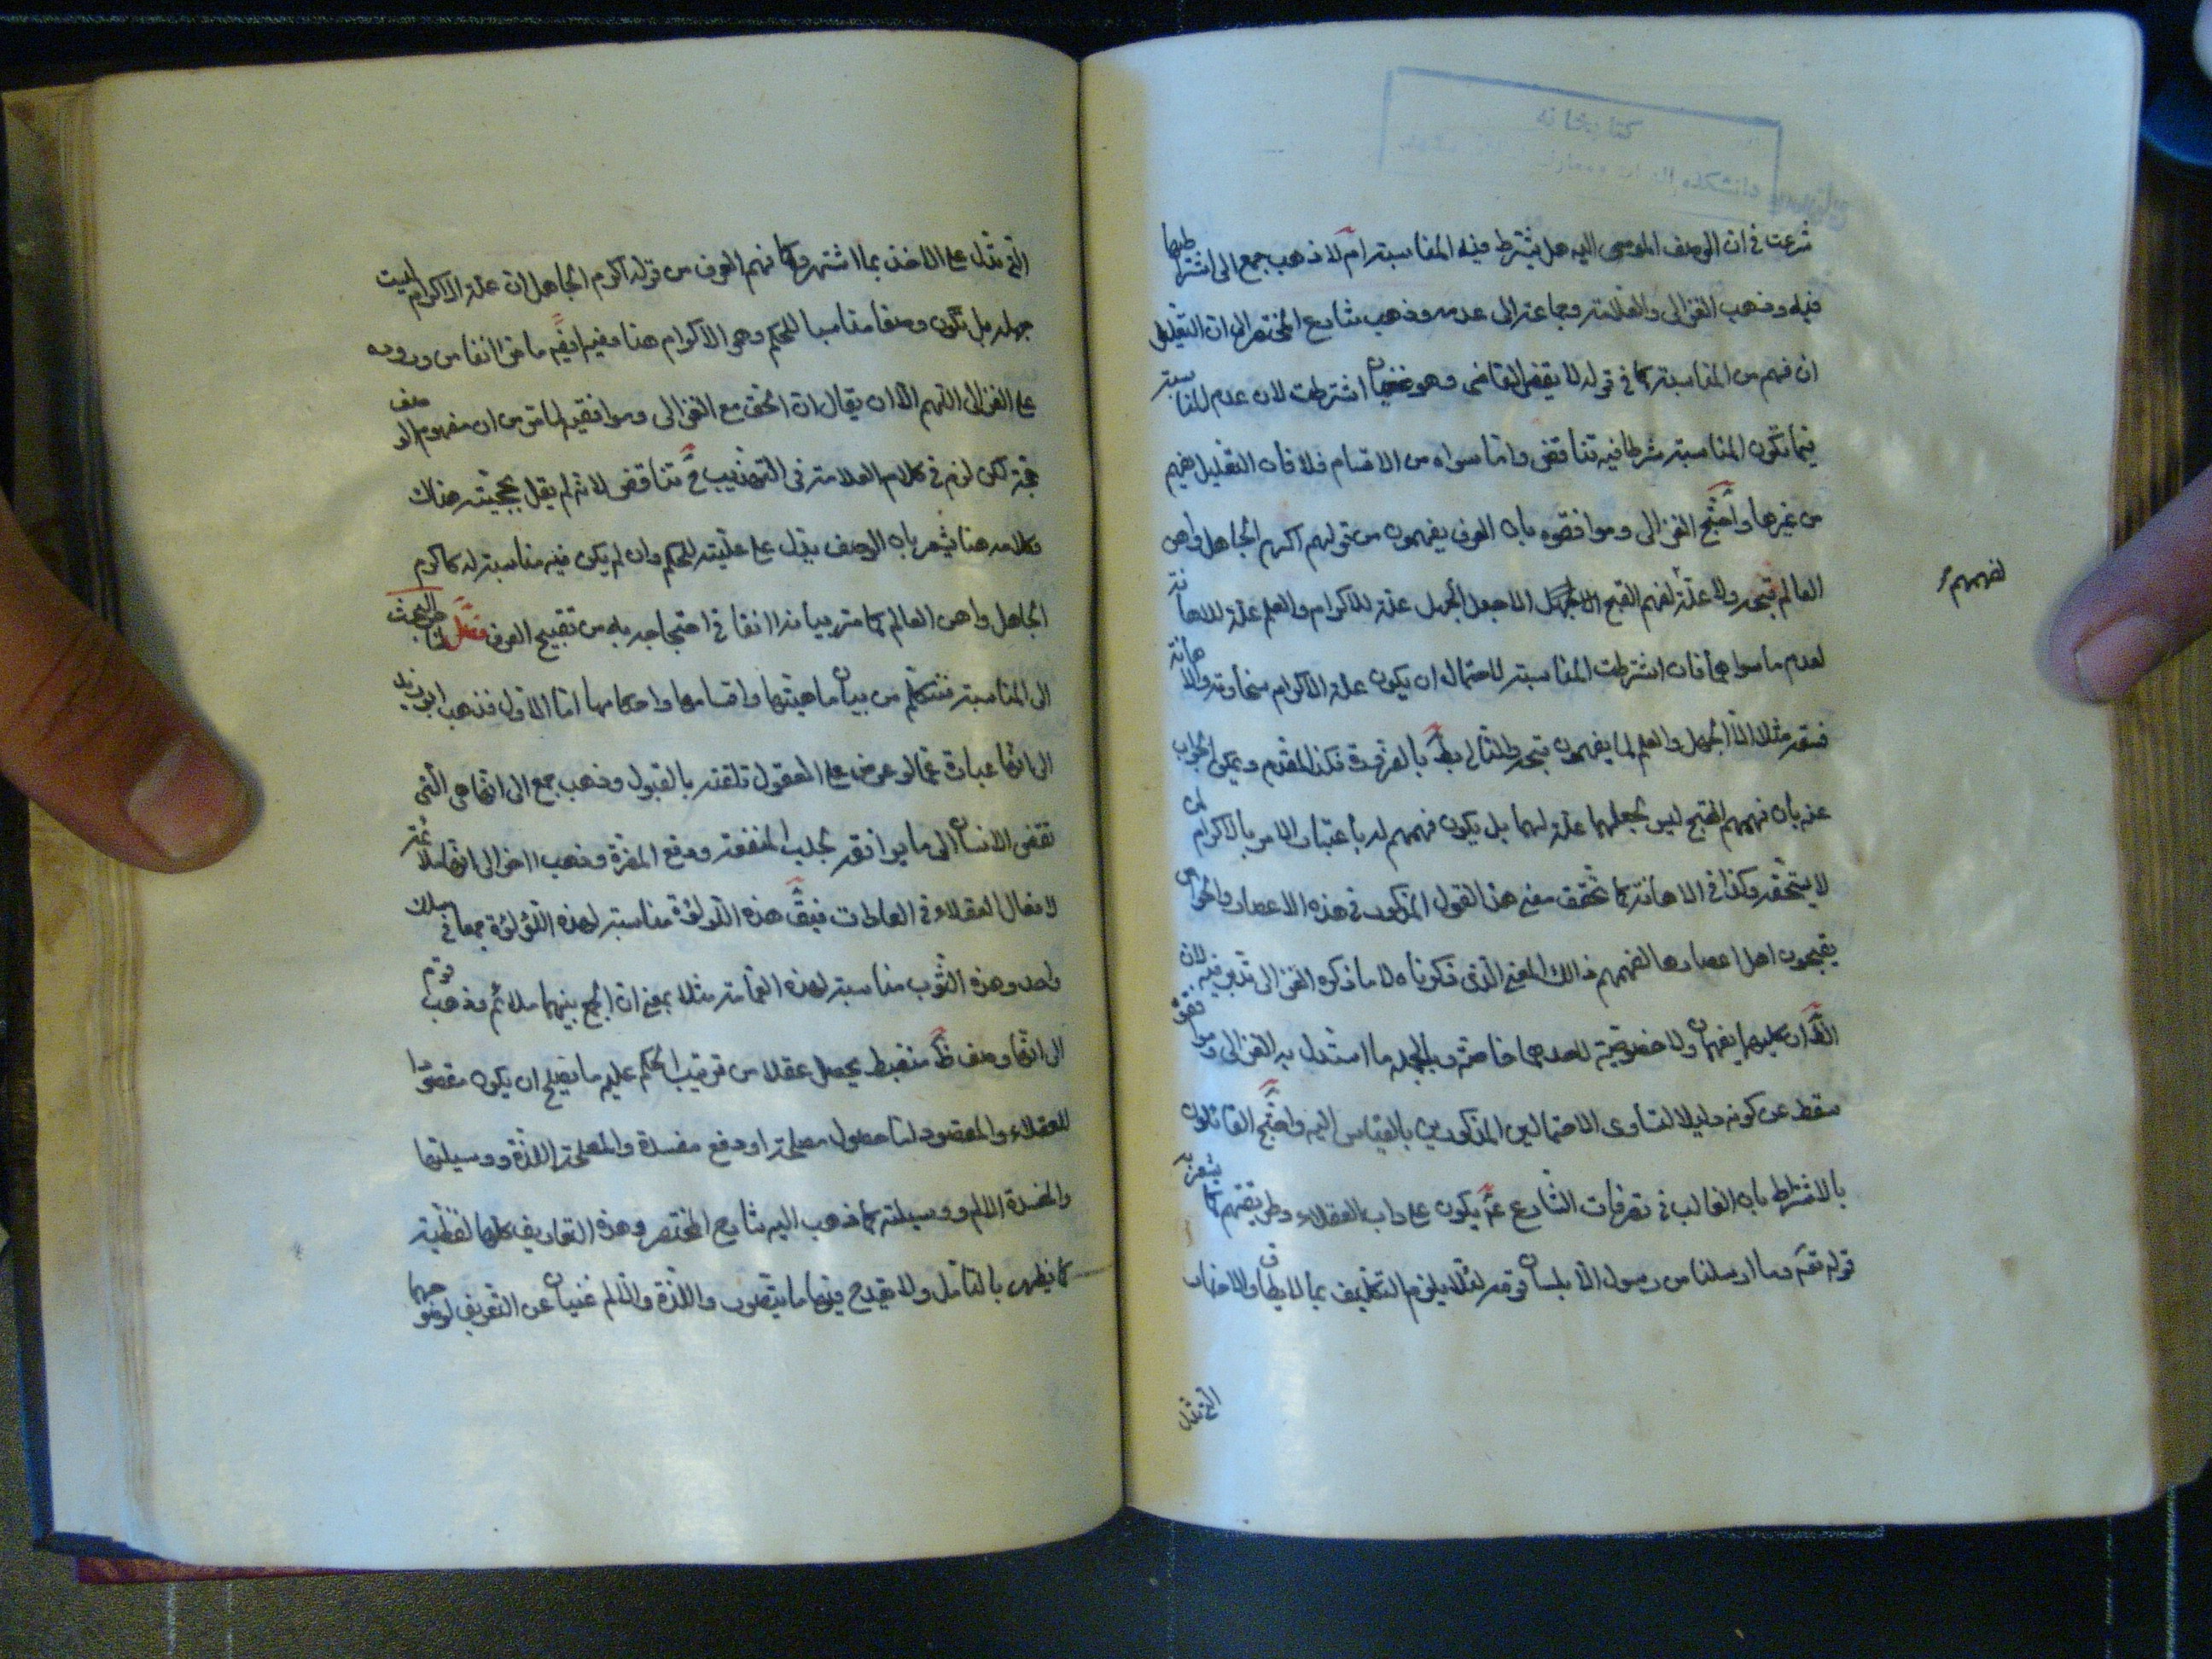 شرعت في ان الوصف المومى اليه هل يشترط فيه المناسبة ام لا ذهب جمع الى اشتراطها
فيه وذهب الغزالي والعلامة وجماعة الى عدمه وذهب شارح المختصر الى ان التعليل
ان فهم من المناسبة كما في قوله لا يقضى القاضى وهو غضبان اشترطت لان عدم المناسبة
فيما تكون المناسبة شرطا فيه تناقض واما سواه من الاقسام فلا فان التعليل يفهم
من غيرها واحتج الغزالي وموافقوه بان العرف يفهمون من قولهم اكرم الجاهل واهن
العالم قبحه ولا علة لفهم القبح الا جعل الجهل علة للاكرام والعلم علة للاهانة
لفهمهم
لعدم ما سواهما فان اشترطت المناسبة لاحتمال ان يكون علة الاكرام سخاوته والاهانة
فسقه مثلا لا الجهل والعلم لما يفهمون قبحه والتالي بط بالضرورة فكذا المقدم ويمكن الجواب
عنه بان فهمهم القبح ليس لجعلهما علة لهما بل يكون فهمهم له باعتبار الامر بالاكرام لمن
لا يستحقه وكذا في الاهانة كما تحقق معنى هذا القول المذكور في هذه الاعصار والخواص
يقبحون اهل اعصارها لفهمهم ذالك المعنى الذى ذكرناه لا ما ذكره الغزالي تدبر فيه لان
الظ ان كليهما يفهمان ولا خصوصية لاحدهما خاصة وبالجملة ما استدل به الغزالي وموافقوه
سقط عن كونه دليلا لتساوى الاحتمالين المذكورين بالقياس اليه واحتج القائلون
بالاشتراط بان الغالب في تصرفات الشارع يكون على داب العقلاء وطريقتهم كما يشعر به
قوله تعم وما ارسلنا من رسول الا بلسان قومه لئلا يلزم التكليف بما لا يطاق والاخبار
التي تدل
التي تدل على الاخذ بما اشتهر وكما فهم العرف من قوله اكرم الجاهل ان علة الاكرام ليست
جهله بل تكون وصفا مناسبا للحكم وهى الاكرام هنا وفيه ايضا ما مر انفا من وروده
على الغزالي اللهم الا ان يقال ان الحق مع الغزالي وموافقيه لما مر من ان مفهوم الوصف
حجة لكن لزم في كلام العلامة في التهذيب ح تناقض لانه لم يقل بحجيته هناك
وكلامه هنا يشعر بان الوصف يدل على عليته للحكم وان لم يكن فيه مناسبة له كاكرم
الجاهل واهن العالم كما مر بيانه انفا في احتجاجه به من تقبيح العرف فصل لما انجر البحث
الى المناسبة فنتكلم من بيان ماهيتها واقسامها واحكامها اما الاول فذهب ابو زيد
الى انها عبارة عما لو عرض على العقول تلقته بالقبول وذهب جمع الى انها هى التى
تقضى الانسان الى ما يوافقه بجلب المنفعة ودفع المضرة وذهب اخر الى انها ملائمة
لافعال العقلاء في العادات فيق هذه اللؤلؤة مناسبة لهذه اللؤلؤة جمعا في سلك
واحد وهذه الثوب مناسبة لهذه العمامة مثلا بمعنى ان الجمع بينهما ملائم وذهب قوم
الى انها وصف ظ منضبط يحصل عقلا من ترتيب الحكم عليه ما يصلح ان يكون مقصودا
للعقلاء والمقصود لنا حصول مصلحة او دفع مفسدة والمصلحة اللذة ووسيلتها
والمفسدة الالم ووسيلته كما ذهب اليه شارح المختصر وهذه التعاريف كلها لفظية
كما يظهر بالتامل ولا يقدح فيها ما يتصور واللذة والالم غنيان عن التعريف لوضوحهما